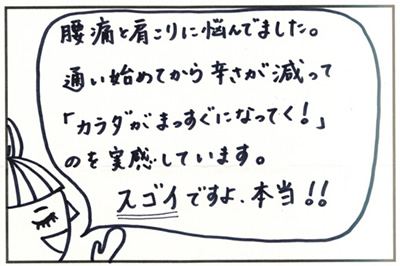 腰痛と肩こりに悩んでました。
通い始めてから辛さが減って
「カラダがまっすぐになってく!」
のを実感しています。
スゴイですよ、本当!!